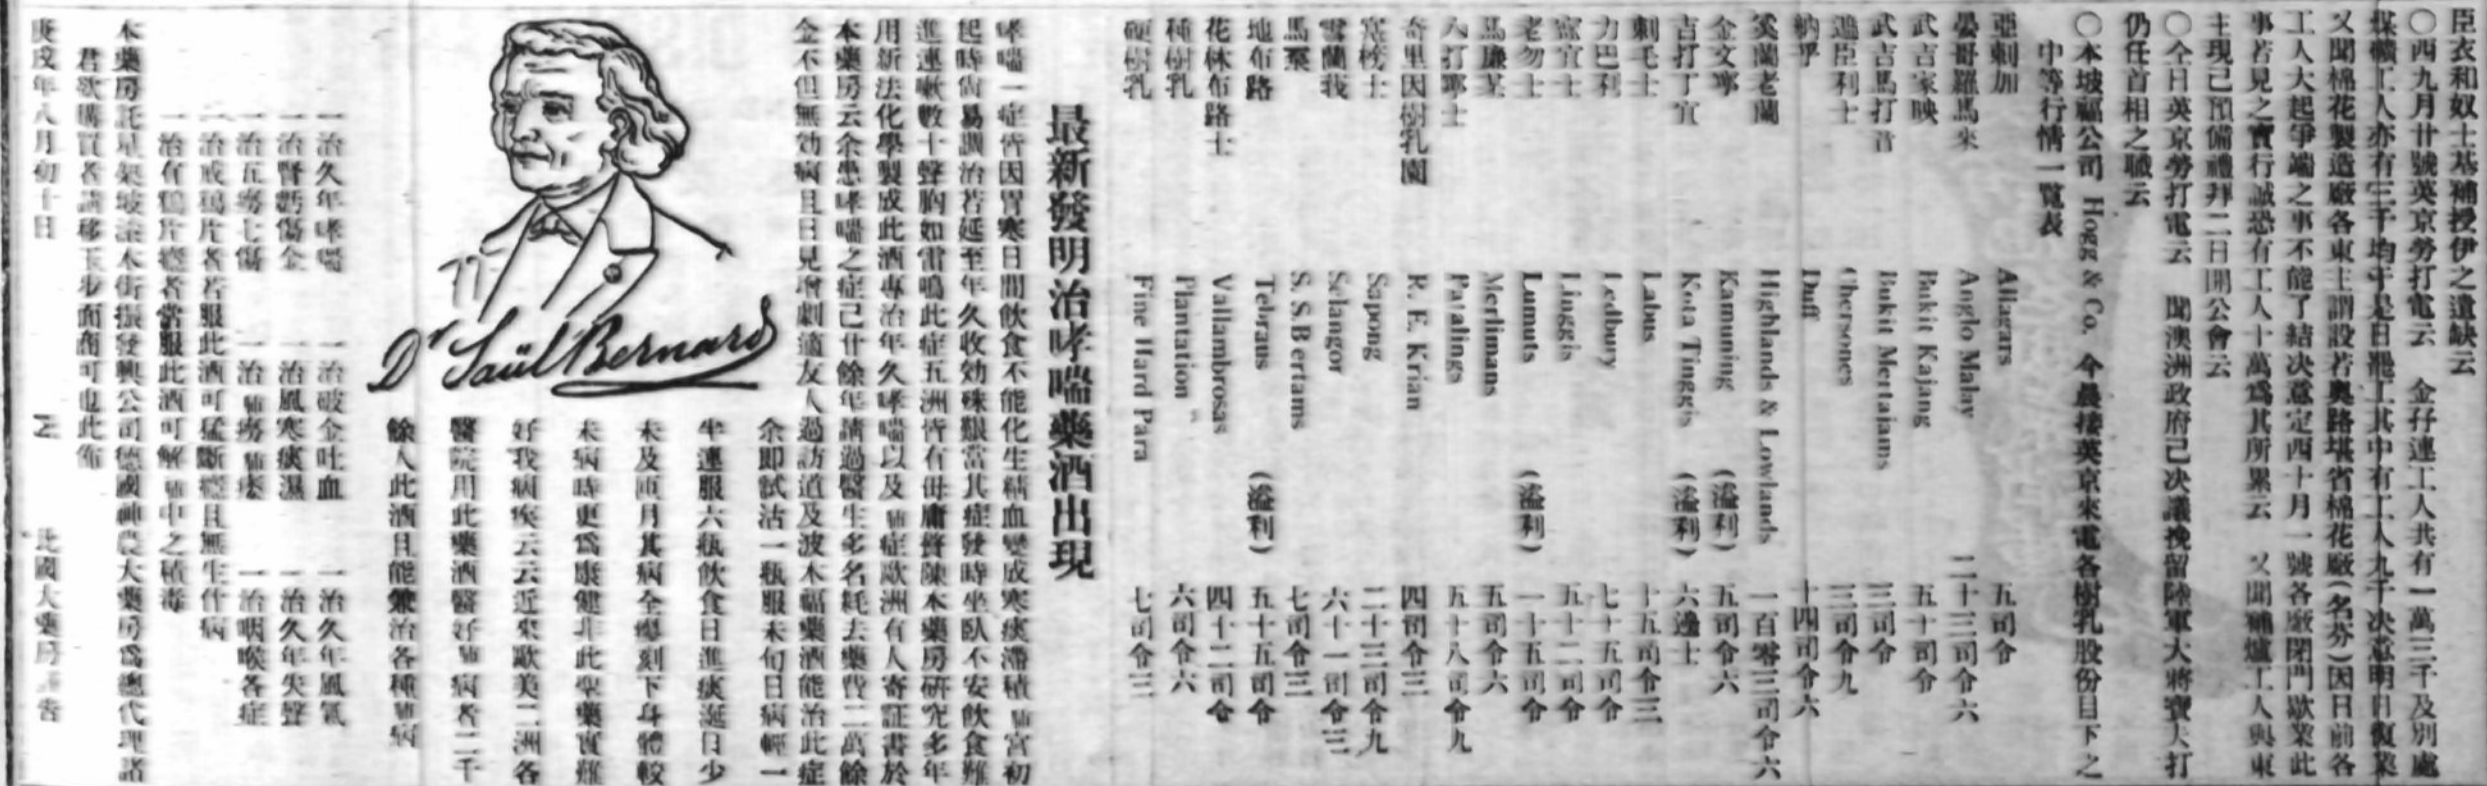 臣衣和奴士基補授伊之遺缺云
〇西九月廿號英京勞打電云 金孖連工人共有一萬三千及別處
煤礦工人亦有三千均于是日罷工其中有工人九千決意明日復業
又聞棉花製造廠各東主謂設若奧路堪省棉花廠(名芬)因日前各
工人大起爭端之事不能了結决意定西四十月一號各廠閉門歇業此
事若見之實行誠恐有工人十萬爲其所累云 又聞補爐工人與東
主現已預備禮拜二日開公會云
〇仝日英京勞打電云 聞澳洲政府已決議挽留陸軍大將寶大打
仍任首相之職云
〇本坡福公司 Hogg & Co. 今晨接英京來電各樹乳股份目下之
中等行情一覽表
亞剌加 Allagars 五司令
晏哥羅馬來 Anglo Malay 二十三司令六
武吉家映 Bukit Kajang 五十司令
武吉馬打音 Bukit Mertajams 三司令
進臣利士 Chersones 三司令九
納乎 Duff 十四司令六
奚蘭老蘭 Highlands & Lowlands 一百零三司令六
金文寧 Kamuning (溢利) 五司令六
吉打丁宜 Kota Tinggis (溢利) 六邊士
剌毛士 Labus 十五司令三
力巴利 Ledbury 七十五司令
寗宜士 Linggis 五十二司令
老勿士 Lumuts (溢利) 一十五司令
馬廉某 Merlimans 五司令六
八打寧士 Patalings 五十八司令九
奇里因樹乳園 R. E. Krian 四司令三
Sapong 二十三司令九
雪蘭莪 Selangor 六十一司令三
馬 S. S Bertams 七司令三
地布路 Tebraus (溢利) 五十五司令
花林布路士 Vallambrosas 四十二司令
種樹乳 Plantation 六司令六
硬樹乳 Fine Hard Para 七司令三
最新發明治哮喘藥酒出現
哮喘一症皆因胃寒日間飲食不能化生精血變成寒痰滯積肺宮初
起時尙易調治若延至年久收効殊艱當其症發時坐臥不安飲食難
進連嗽數十聲胸如雷鳴此症五洲皆有毋庸贅陳本藥房硏究多年
用新法化學製成此酒專治年久哮喘以及肺症歐洲有人寄証書於
本藥房云余患哮喘之症已廿餘年請過醫生多名耗去藥費二萬餘
金不但無効病且日見增劇適友人過訪道及波木福藥酒能治此症
Dr Saül Bernard
余即試沽一瓶服未旬日病輕一
半連服六瓶飲食日進痰涎日少
未及兩月其病全愈刻下身體較
未病時更爲康健非此聖藥實難
好我病疾云云近來歐美二洲各
醫院用此藥酒醫好肺病者二千
餘人此酒且能兼治各種肺病
一治久年哮喘 一治破金吐血 一治久年風氣
一治腎虧傷金 一治風寒痰濕 一治久年失聲
一治五癆七傷 一治肺癆肺痿 一治咽喉各症
一治戒鴉片者若服此酒可猛斷癮且無生什病
一治有鴉片癮者常服此酒可解肺中之積毒
本藥房託星架坡 本街振發興公司德國神農大藥房爲總代理諸
君欲購買者請移玉步面商可也此佈
庚戌年八月初十日 大藥房 告